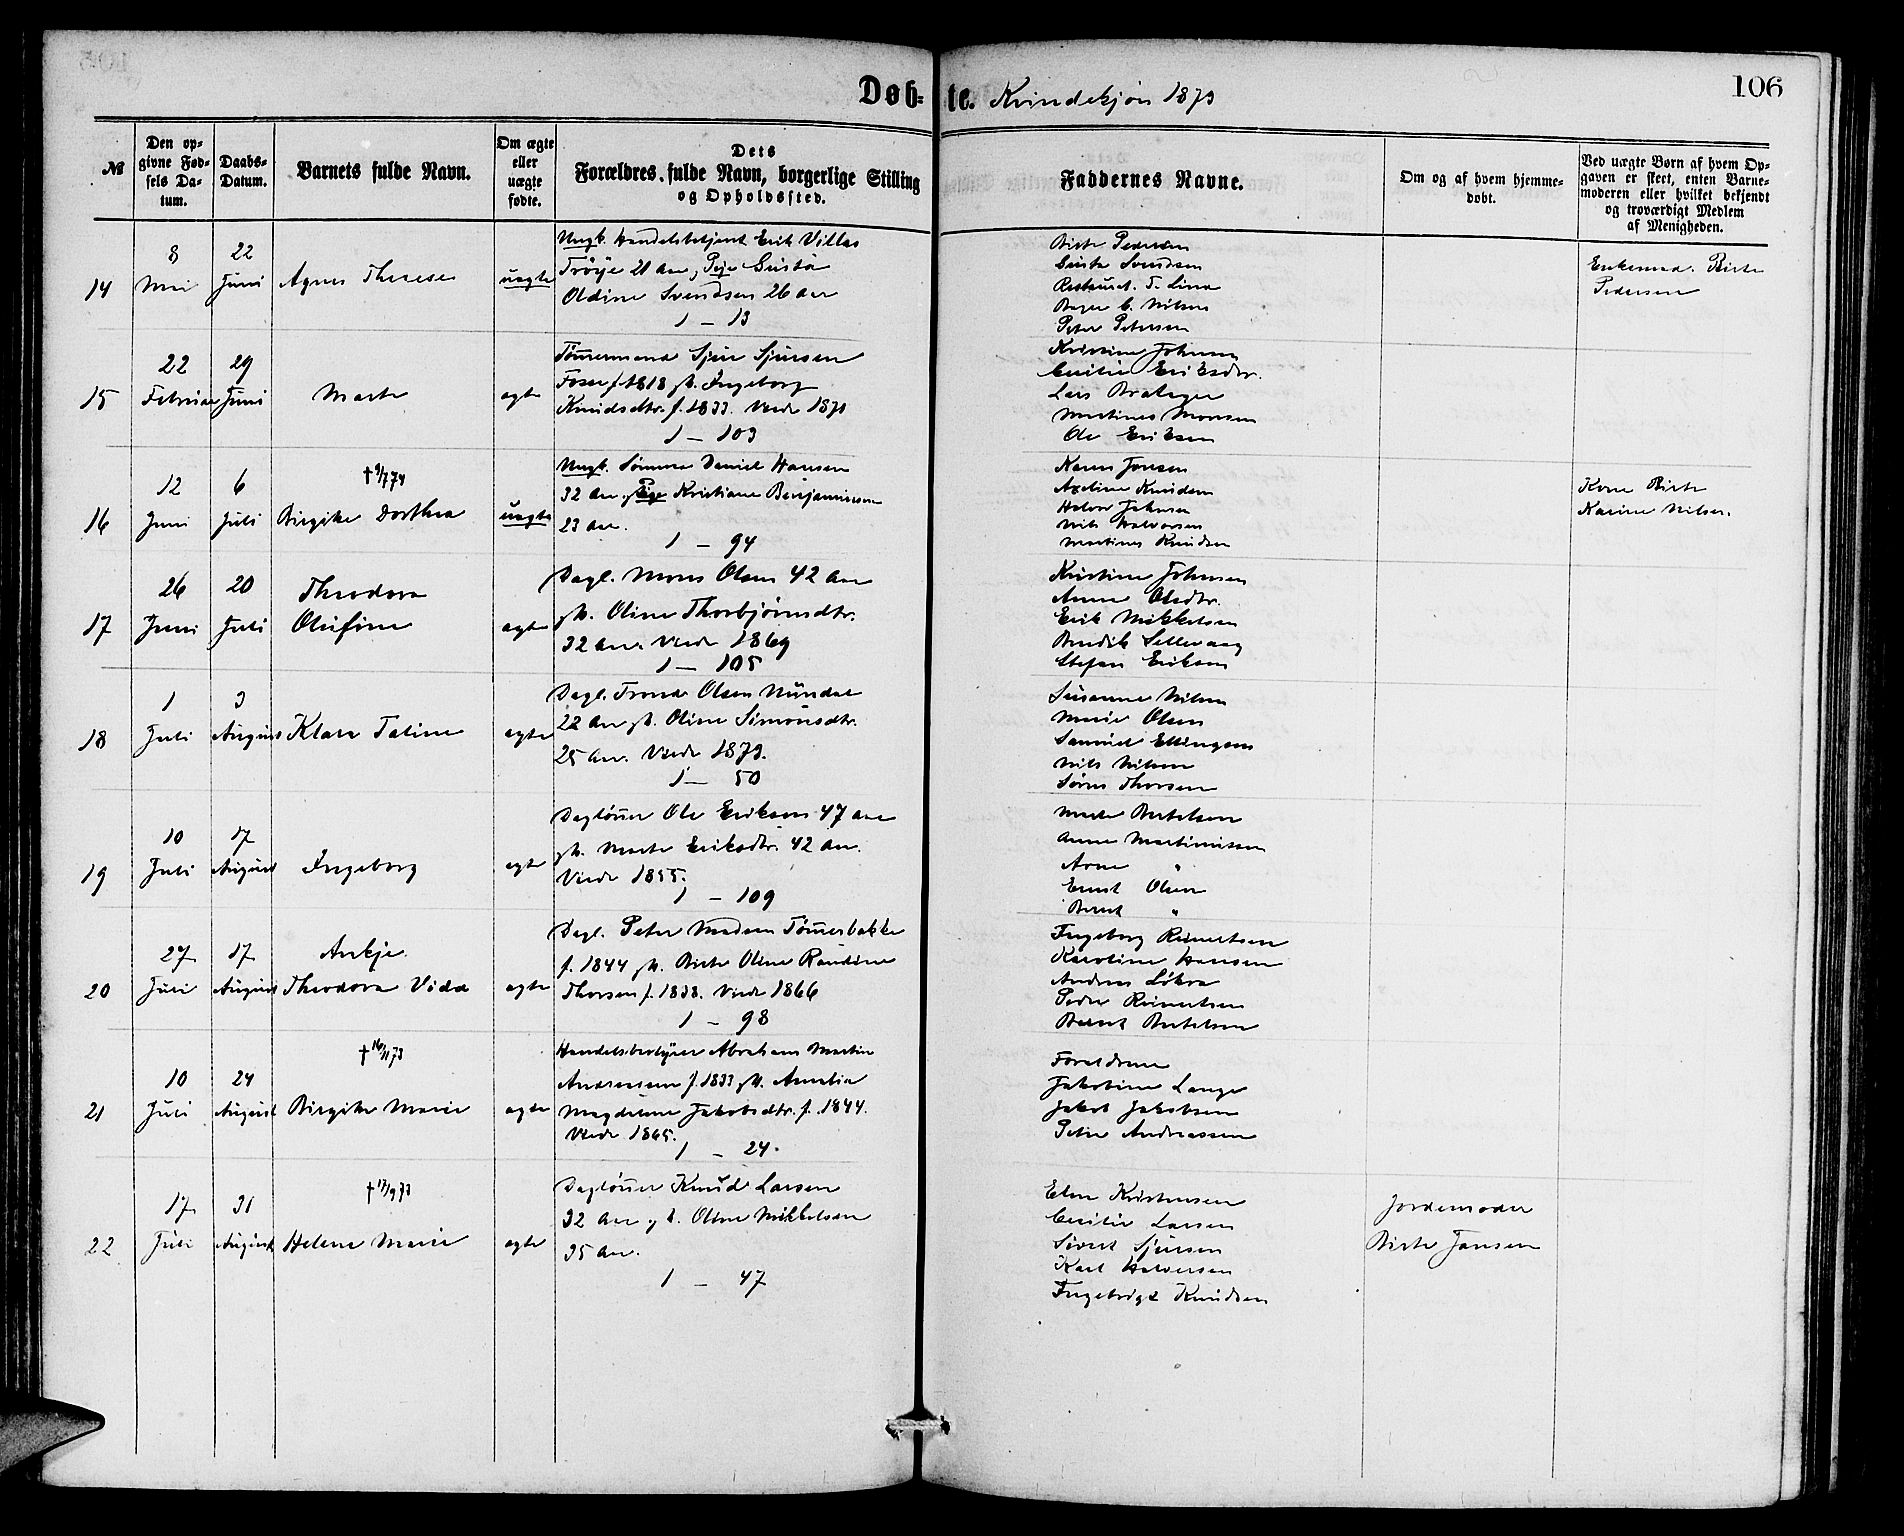 106
Døbte. Kvindekjøn 1873
№
Den opgivne Fødsels Datum.
Daabs-Datum.
Barnets fulde Navn.
Om ægte eller uægte fødte.
Dets Forældres fulde Navn, borgerlige Stilling og Opholdssted.
Faddernes Navne.
Om og af hvem hjemmedøbt.
Ved uægte Børn af hvem Opgaven er skeet, enten Barnemoderen eller hvilket bekjendt og troværdigt Medlem af Menigheden.
14
8 Mai
22 Juni
Agnes Therese
uægte
Ungk. Handelsbetjent Erik Villas
Trøye 21 Aar, Pige Gusta
Oldine Svendsen 26 Aar
1 – 13
Birte Pedersen
Gusta Svendsen
T. Lind
C. Nilsen
Peter Petersen
Enkemad. Birte
Pedersen
15
22 Februar
29 Juni
Marte
ægte
Tømmermand Sjur Sjursen
Fosse f. 1818 ph. Ingeborg
Knudsdtr. f. 1833. Viede 1870
1 – 103
Kristine Johnsen
Cecilie Eriksdtr.
Lars Brateger
Martines Monsen
Ole Eriksen
16
12 Juni
6 Juli
† 9/7 74
Birgitte Dorthea
uægte
Ungk. Sømand Daniel Hansen
32 Aar, Pige Kristiane Benjaminsen
23 Aar.
1 – 94
Karen Jonsen
Axeline Knudsen
Halvor Johnsen
Nils Halvorsen
Martines Knudsen
Kone Birte
Karine Nilsen.
17
26 Juni
20 Juli
Theodora
Olufine
ægte
Dagl. Mons Olsen 42 Aar
ph. Oline Thorbjørnsdtr.
32 Aar. Viede 1869
1 – 105
Kristine Johnsen
Anne Olsdtr.
Erik Mikkelsen
Bendik Sellevaag
Stefan Eriksen
18
1 Juli
3 August
Klara Taline
ægte
Dagl. Trond Olsen Nundal
22 Aar ph. Oline Simonsdtr.
25 Aar. Viede 1873.
1 – 50
Susanne Nilsen
Marie Olsen
Samuel Ellingsen
Nils Nilsen
Søren Thorsen
19
10 Juli
17 August
Ingeborg
ægte
Dagløner Ole Eriksen 47 Aar
ph. Marte Eriksdtr. 42 Aar.
Viede 1855.
1 – 109
Marte Bertelsen
Anne Martinussen
Arne "
Ernst Olsen
Bernt "
20
27 Juli
17 August
Ankje
Theodora Vida
ægte
Dagl. Peter Madsen Tømmerbakke
f. 1844 ph. Birte Oline Randine
Thorsen f. 1838. Viede 1866
1 – 98
Ingeborg Reinertsen
Karoline Hansen
Andreas Løkra
Peder Reinertsen
Bernt Bertelsen
21
10 Juli
24 August
† 16/11 73
Birgitte Marie
ægte
Handelsbestyrer Abraham Martin
Andreassen f. 1833 ph. Amalia
Magdalene Jakobsdtr. f. 1844.
Viede 1865.
1 – 24.
Forældrene
Jakobine Lange
Jakob Jakobsen
Peter Andreassen
22
17 Juli
31 August
† 17/9 73
Helene Marie
ægte
Dagløner Knud Larsen
32 Aar ph. Oline Mikkelsen
35 Aar.
1 – 47
Elen Kristensen
Cecilie Larsen
Sivert Sjursen
Karl Halvorsen
Ingebrigt Knudsen
Jordemoder
Birte Jansen